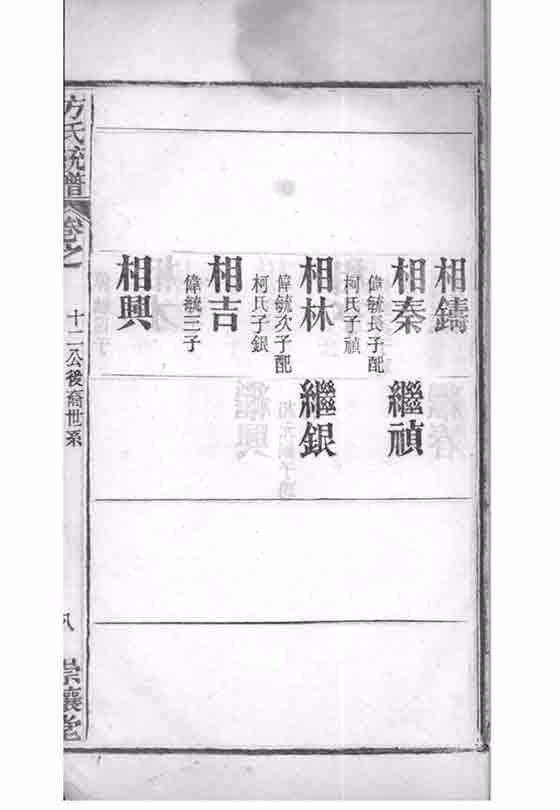 相鑄
相秦
繼禎
偉毓長子配
柯氏子禎
相林
繼銀
偉毓次子配
柯氏子銀
相吉
偉毓三子
相興
方氏統譜
卷之
十二公後裔世系
八
崇讓堂